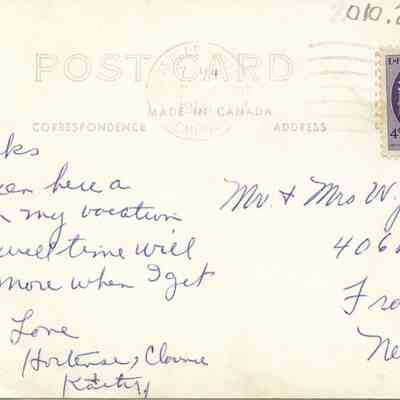 2010.2
POST CARD
MADE IN CANADA
CORRESPONDENCE
ADDRESS
4¢
ks
en here a
n my vacation
well time will
more when I get
Love
Hortense, Clarence
Kathy
Mr. & Mrs W.
406
Fra
Ne